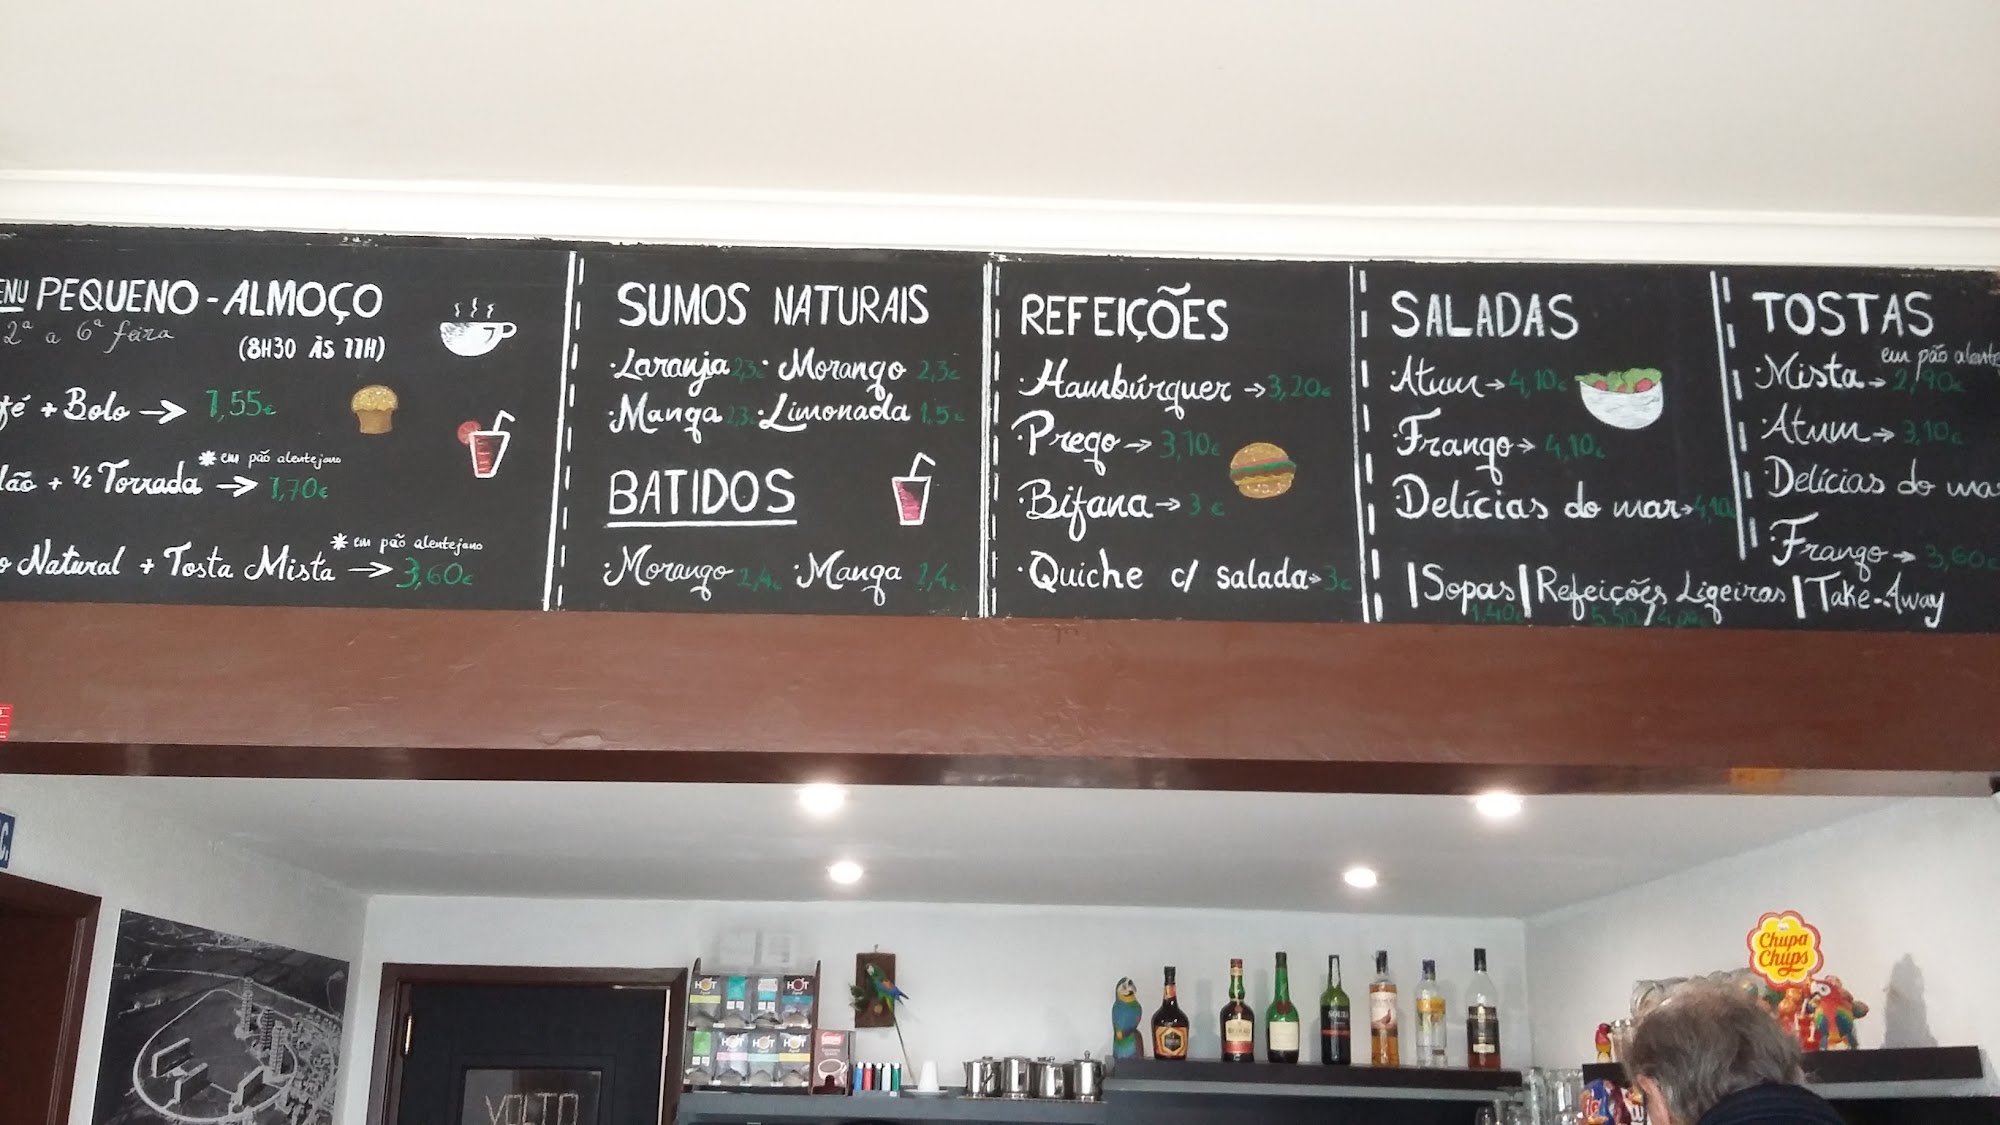 PEQUENO-ALMOÇO
2ª a 6ª feira
(8H30 ÀS 11H)
+ Bolo → 1,55€
* em pão alentejano
+ ½ Torrada → 1,70€
* em pão alentejano
Natural + Tosta Mista → 3,60€
SUMOS NATURAIS
·Laranja 2,3€ · Morango 2,3€
·Manga 2,3€ ·Limonada 1,5€
BATIDOS
·Morango 2,4€ ·Manga 2,4€
REFEIÇÕES
·Hambúrguer → 3,20€
·Prego → 3,10€
·Bifana → 3€
·Quiche c/ salada → 3€
SALADAS
·Atum → 4,10€
·Frango → 4,10€
·Delícias do mar → 4,10€
TOSTAS
em pão
·Mista → 2,90€
·Atum → 3,10€
·Delícias do
·Frango → 3,60€
|Sopas|Refeições Ligeiras|Take-Away
1,40€
HOT
HOT
HOT
HOT
HOT
VOLTO
Chupa
Chups